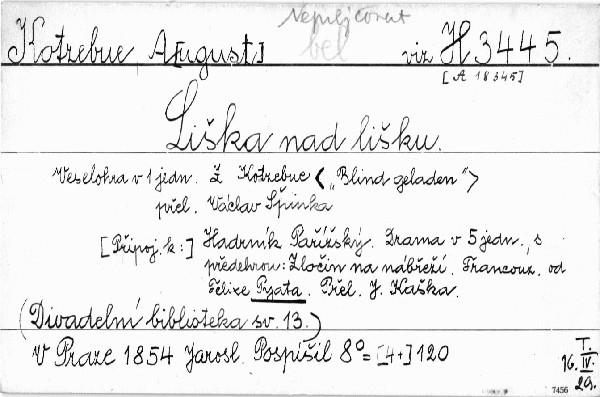 Nepůjčovat
bel
Kotzebue A[ugust] viz H 3445.
[A 18345]
Liška nad lišku.
Veselohra v 1 jedn. Z Kotzebue <„Blind geladen“>
přel. Václav Špinka
[Připoj. k:] Hadrník Pařížský. Drama v 5 jedn., s
předehrou: Zločin na nábřeží. Francouz. od
Felixe Pyata. Přel. J. Kaška.
(Divadelní biblioteka sv. 13.)
V Praze 1854 Jarosl. Pospíšil 8° = [4+] 120
T.
16. IV.
29.
7456